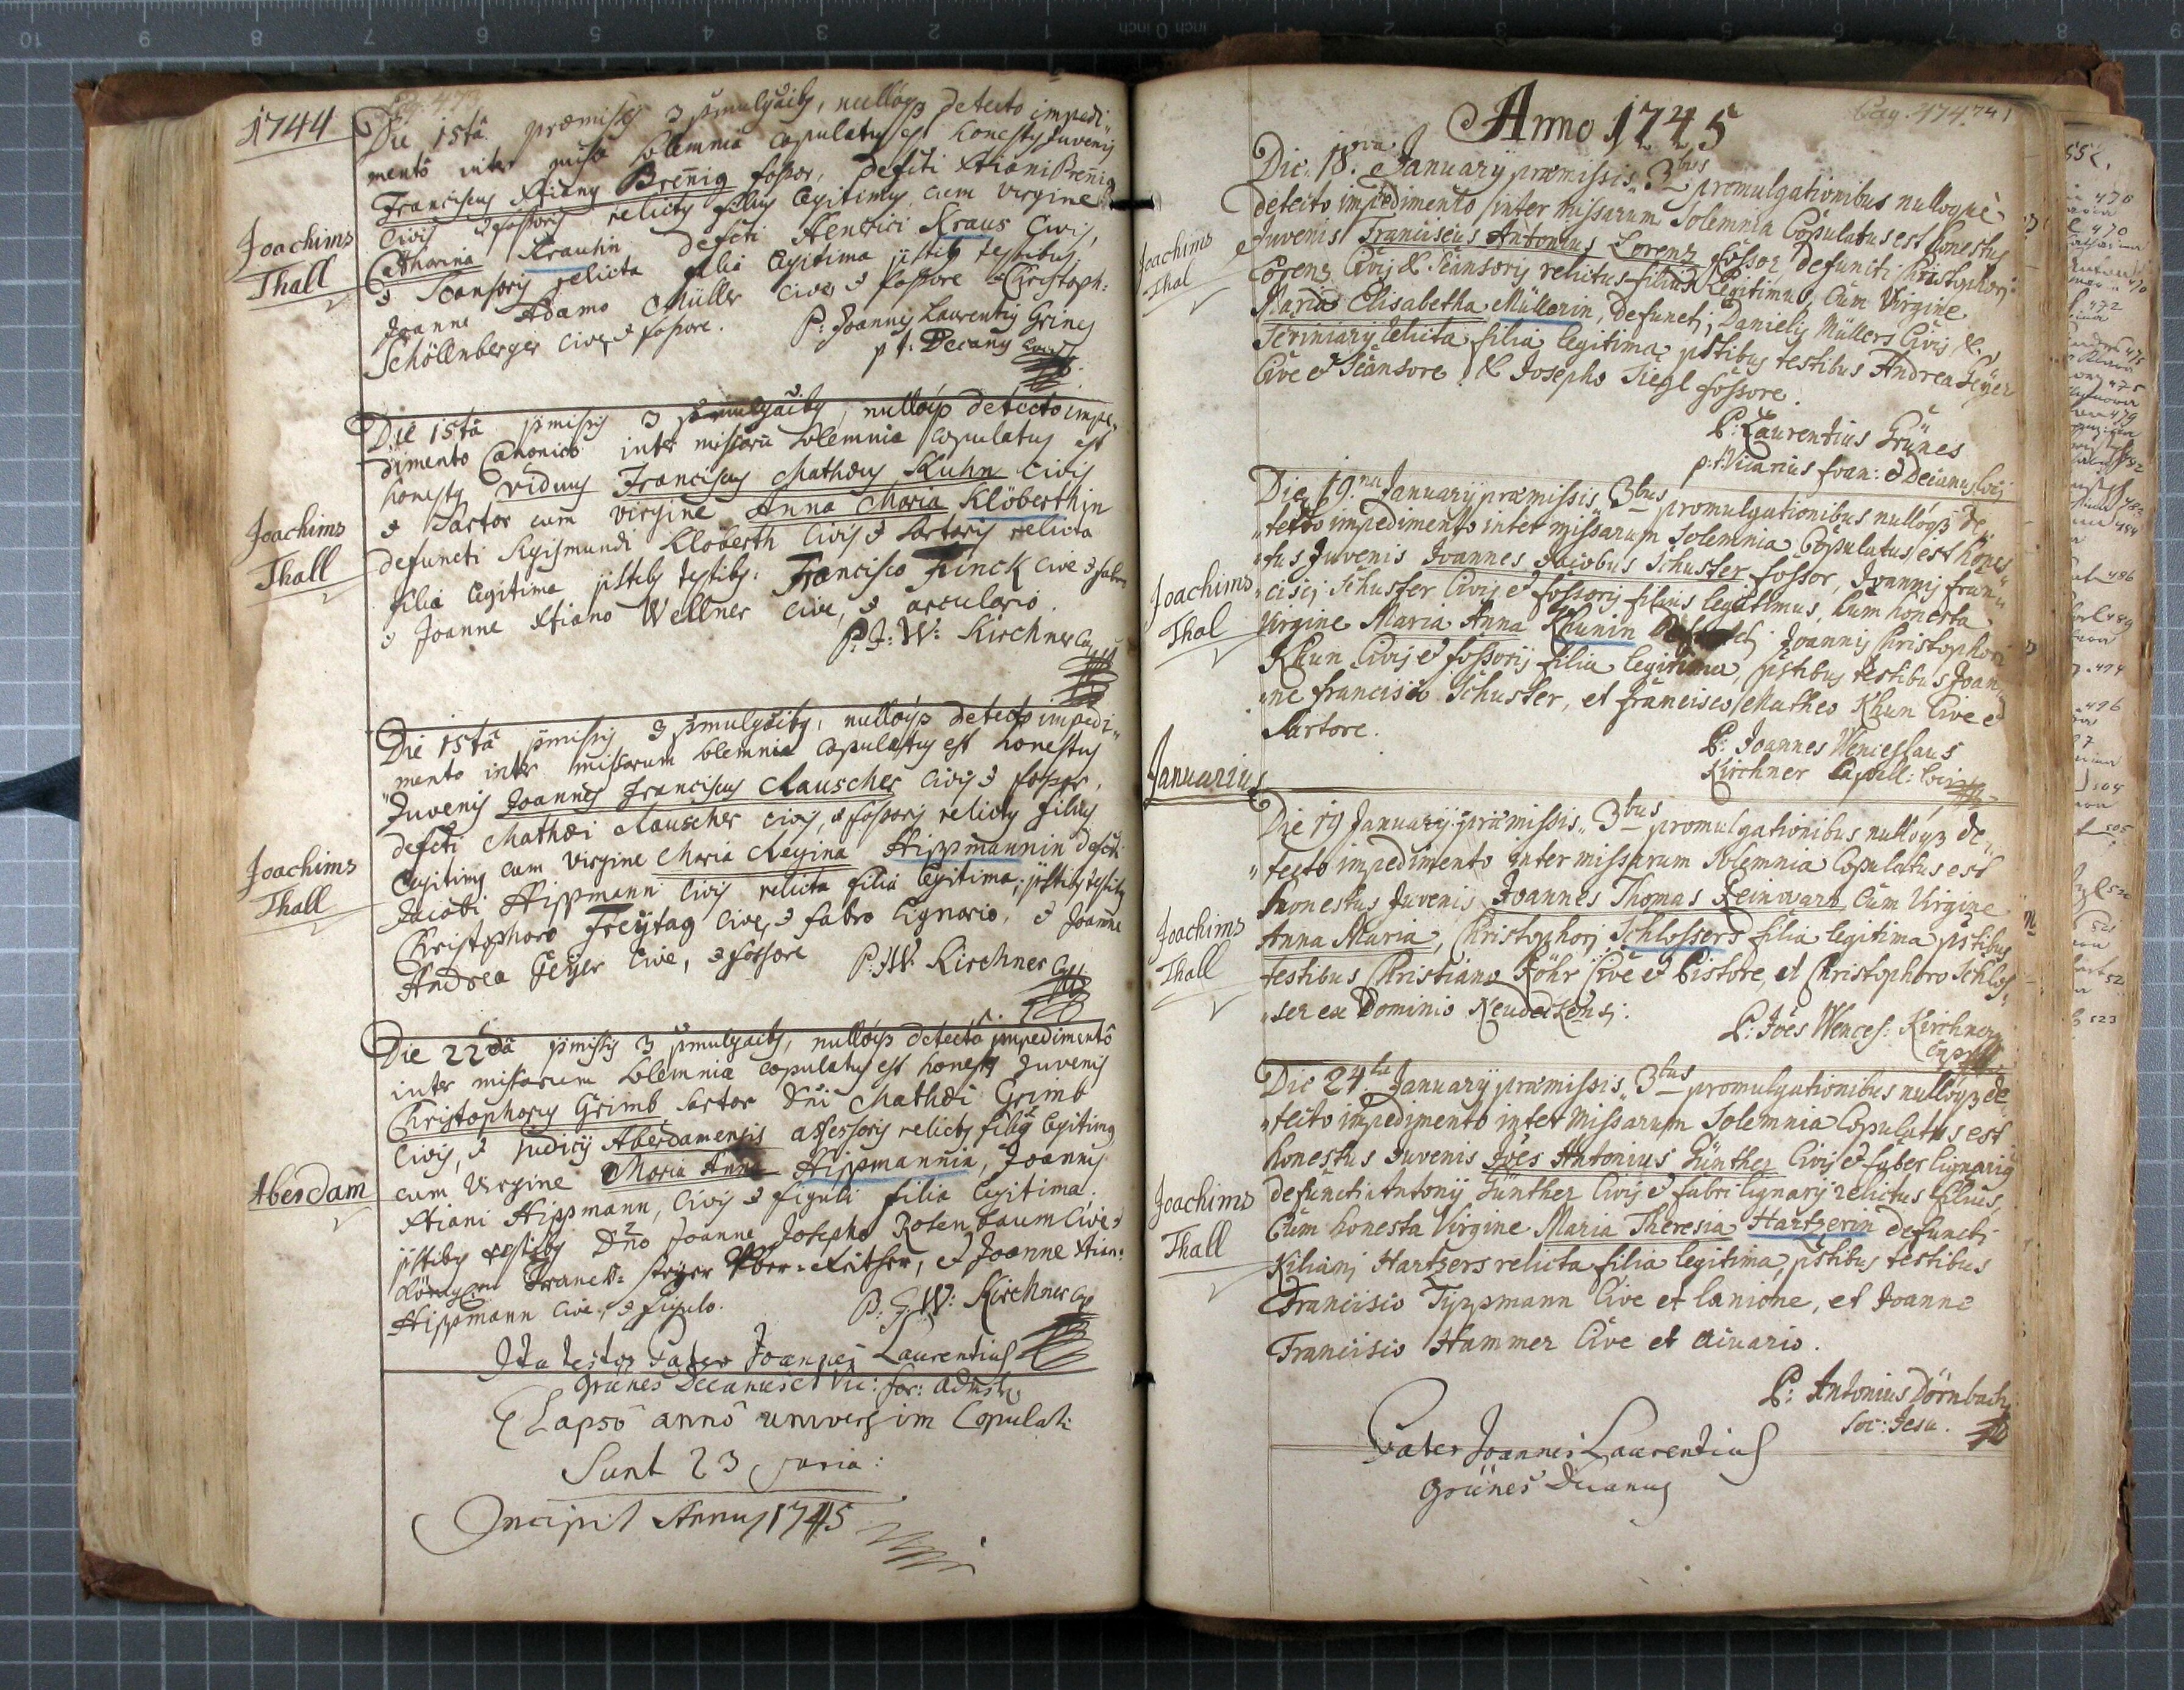 1744
Pag. 473
Die 15tâ præmissis 3 pmulgâcibq, nullóqz detecto impedi„
mentô inter missar solemnia copulatus est honestq Juvenis
Franciscus Xtiany Brenig fossor, defcti Xtiani Brenig
Civis & fossoris relictq filiq legitimq, cum virgine
Joachims
Thall
Catharina Krausin defcti Henrici Kraus Civis,
& Scansoris relicta filia legitima pstibq testibus.
Joanne Adamo Müller Cive & fossore & Christoph:
Schöllnberger Cive & fossore.
P: Joannes Laurentiq Grines
p t: Decanq loci
Die 15tâ pmissis 3 pmulgâcibq, nullóqz detecto impe„
dimento Canonico inter missarû solemnia copulatus est
honestq viduus Franciscus Mathæus Kuhn Civis
& Sartor cum virgine Anna Maria Klöberthin
Joachims
Thall
defuncti Sigismundi Kloberth Civis & Sartoris relicta
filia legitima pstibq testibq. Francisco Finck Cive & fabro
& Joanne Xtiano Wellner Cive, & arculario.
P: J: W: Kirchner Cap
Die 15tâ pmissis 3 pmulgâcibq, nullóqz detecto impedi„
„mento inter missarum solemnia copulatus est honestus
Juvenis Joannes Franciscus Rauscher Civis & fossor,
defcti Mathæi Rauscher Civis, & fossoris relictq filius
Joachims
Thall
legitimq cum virgine Maria Regina Hippmannin defcti
Jacobi Hippmann Civis relicta filia legitima; pstibq testibq
Christophoro Freÿtag Cive, & fabro lignario, & Joanne
Andrea Geÿer Cive, & fossore
P: J W: Kirchner Cap
Die 22dâ pmissis 3 pmulgâcibq, nullóqz detectô impedimentô
inter missarum solemnia copulatus est honestq Juvenis
Christophorus Grimb Sartor Dñi Mathæi Grimb
Civis, & Judicij Aberdamensis assessoris relictq filiq legitimq
Aberdam
cum virgine Maria Anna Hippmannin, Joannis
Xtiani Hippmann, Civis & figuli filia legitima.
pstibq testibq Dño Joanne Josepho Rotenbaum Cive &
Königl: Tranck: steÿer Über-Reither, & Joanne Xtian:
Hippmann Cive, & figulo.
P: J: W: Kirchner Cap
Ita testor Pater Joannes Laurentius
Grünes Decanus et Vic: for: admst
Elapsô annô universim Copulati
Sunt 23 paria:
Incipit Annus 1745
Pag. 474. 741
Anno 1745
Die 18.va Januarÿ præmissis 3bus promulgationibus nulloquè
detecto impedimento inter missarum Solemnia Copulatus est honestus
Juvenis Franciscus Antonius Lorenz fossor, defuncti Christophori
Joachims
Thal
Lorenz Civis & Scansoris relictus filius legitimus, Cum Virgine
Maria Elisabetha Müllerin, defuncti Danielis Müllers Civis &
Scriniarÿ relicta filia legitima, pstibus testibus Andrea Geÿer
Cive & Scansore & Josepho Siegl fossore.
P: Laurentius Grünes
p:t: Vicarius foran: & Decanus loci
Die 19.na Januarÿ præmissis 3bus promulgationibus nullóqz de„
„tecto impedimento inter missarum Solemnia Copulatus est hones„
„tus Juvenis Joannes Jacobus Schuster fossor, Joannis Fran„
Joachims
Thal
„cisci Schuster Civis & fossoris filius legitimus, Cum honesta
Virgine Maria Anna Khunin Joannis Christophori
Khun Civis & fossoris filia legitima, pstibus testibus Joan„
„ne Francisco Schuster, et Francisco Matheo Khun Cive &
Sartore.
P: Joannes Wenceslaus
Kirchner Capell: loci
Januarius
Die 19 Januarÿ præmissis 3bus promulgationibus nullóqz de„
„tecto impedimento inter missarum Solemnia Copulatus est
honestus Juvenis Joannes Thomas Feinwart Cum Virgine
Joachims
Thall
Anna Maria, Christophori Schlossers filia legitima pstibus
testibus Christiano Föhr Cive & Pistore, et Christophoro Schlos„
„ser ex Dominio Neudeckensi.
P: Joës Wences: Kirchner
Cap
Die 24.ta Januarÿ præmissis 3bus promulgationibus nullóqz de„
„tecto impedimento inter Missarum Solemnia Copulatus est
honestus Juvenis Joës Antonius Günther Civis & faber lignariq
Joachims
Thall
defuncti Antonÿ Günther Civis & fabri lignarÿ relictus filius,
Cum honesta Virgine Maria Theresia Hartzerin defuncti
Kiliani Hartzers relicta filia legitima, pstibus testibus
Francisco Tippmann Cive et lanione, et Joanne
Francisco Hammer Cive et acuario.
P: Antonius Dörnbach
Soc: Jesu.
Pater Joannes Laurentius
Grünes Decanus